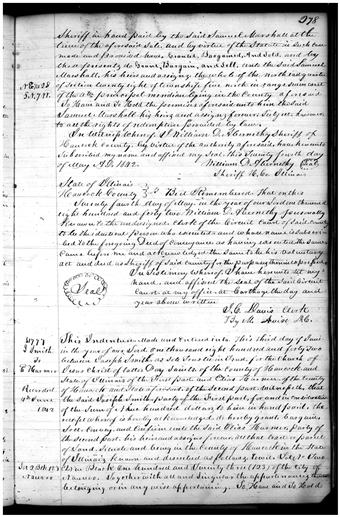 278
Sheriff in hand paid by the said Samuel Marshall at the
time of the aforesaid sale, and by virtue of the Statute in such case
made and provided have Granted, Bargained, And Sold, and by
these presents do Grant, Bargain, and Sell unto the said Samuel
Marshall his heirs and assigns the whole of the North east quarter
of Section Twenty eight of township five north in range seven west
of the 4th Principal Meridian lying in the County aforesaid
To Have and To Hold the premises aforesaid unto him the said
Samuel Marshall his heirs and assigns forever Subject however
to all the rights of redemption provided by law.
In Witness whereof I William D. Abernethy Sheriff of
Hancock County by Virtue of the authority aforesaid have hereunto
Subscribed my name and affixed my Seal this Twenty fourth day
of May A.D. 1842. William D. Abernethy Seal
Sheriff H. Co. Illinois
State of Illinois
Hancock County Be it Remembered That on this
Twenty fourth day of May in the year of our Lord one thousand
eight hundred and forty two William D. Abernethy personally
known to the undersigned clerk of the Circuit Court of said County
to be the identical person who executed and whose name is subscri-
bed to the foregoing Deed of Conveyance as having executed the same
Came before me and acknowledged the same to be his Voluntary
act and deed as Sheriff of said County for the purposes therein specified
In Testimony Whereof I have hereunto set my
name and affixed the seal of the said Circuit
Seal
Court at my office at Carthage the day and
year above written
J. C. Davis Clerk
4777
J Smith
To
E Harmer
Recorded
4th June
1842
This Indenture Made and Entered into This third day of June
in the year of our Lord one thousand eight hundred and forty two
between Joseph Smith as Sole Trustee in Trust for the church of
Jesus Christ of Latter Day Saints of the County of Hancock and
State of Illinois of the first part and Elias Harmer of the County
of Hancock and State aforesaid of the Second part Witnesseth, that
the said Joseph Smith party of the first part, for and in consideration
of the Sum of Five hundred dollars to him in hand paid, the
receipt whereof is hereby acknowledged do hereby grant bargain
Sell Convey and Confirm unto the said Elias Harmer, party of
the second part, his heirs and assigns forever all that tract or parcel
of Land, Situate and being in the County of Hancock in the State
of Illinois known and described as follows, to wit: Lot No Two
in Block One hundred and Twenty three (123) of the City of
Nauvoo
Nauvoo. Together with all and Singular the appurtenances thereunto
belonging or in any wise appertaining. To Have and To Hold